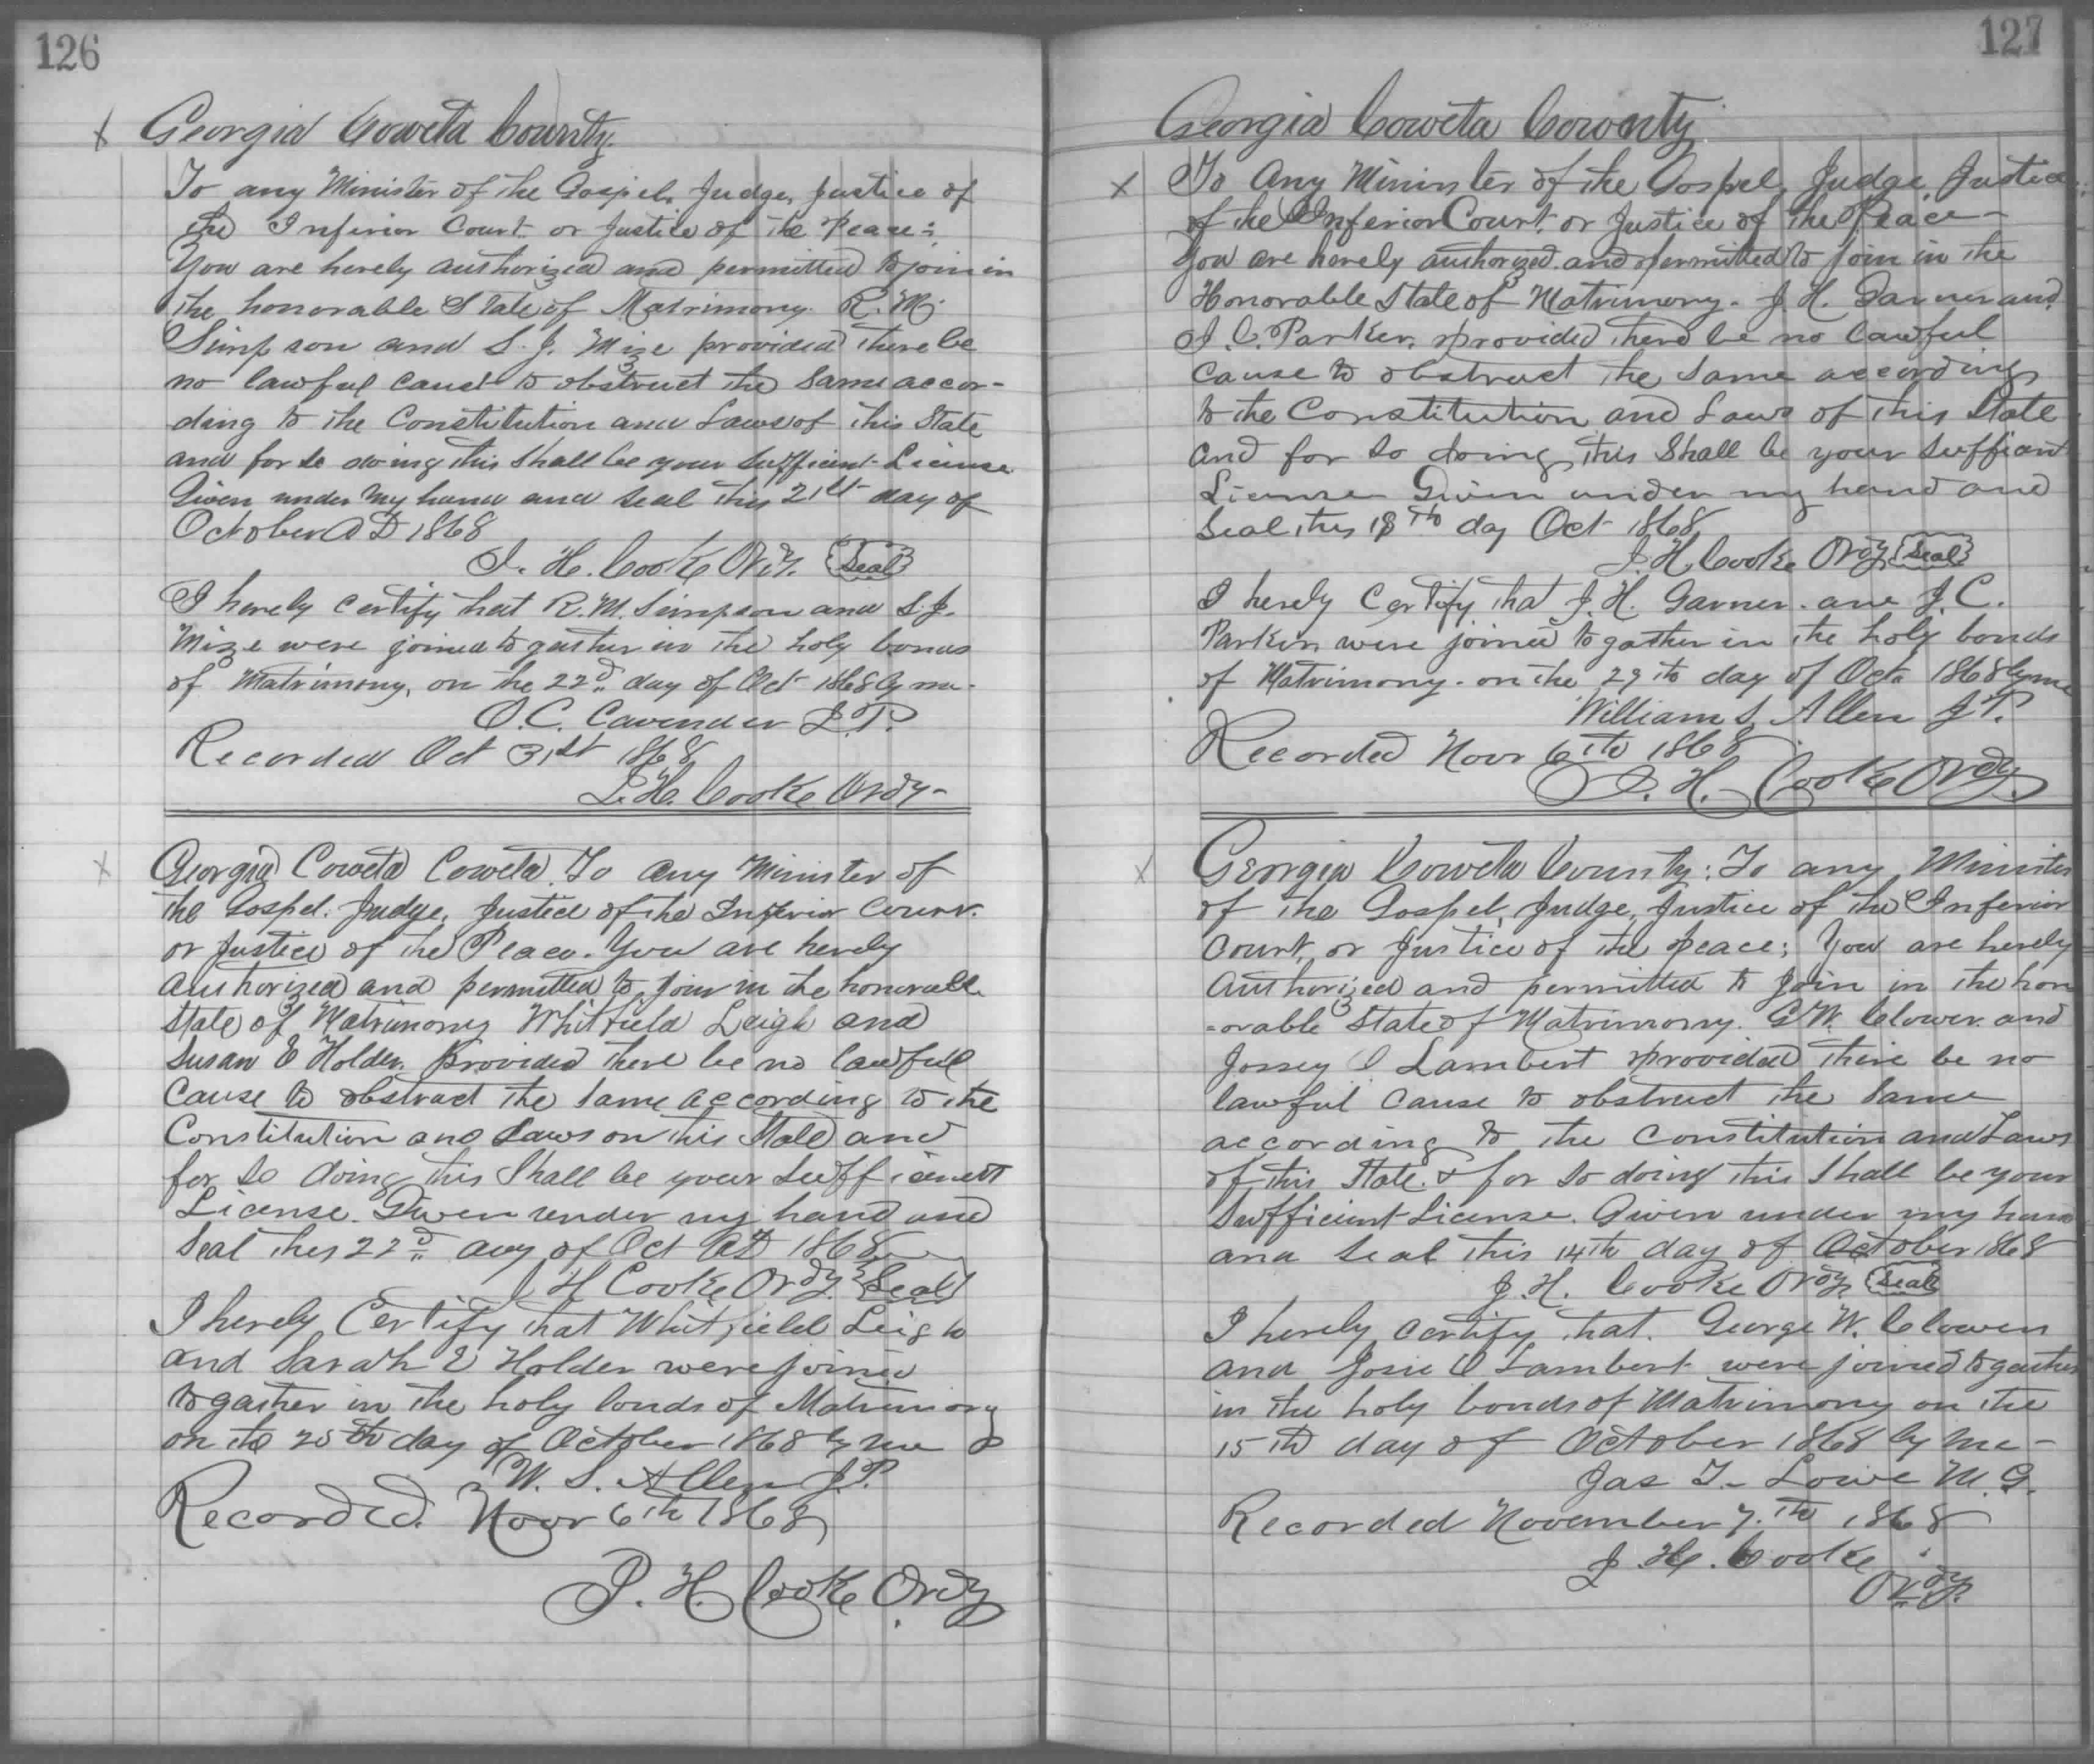 126
Georgia Coweta County.
To any Minister of the Gospel, Judge, Justice of
the Inferior Court or Justice of the Peace:
You are hereby authorized and permitted to join in
the honorable State of Matrimony R. M.
Simpson and S. J. Mize provided there be
no lawful cause to obstruct the same accor-
ding to the Constitution and Laws of this State
and for so doing this shall be your sufficient License
Given under my hand and seal this 21st day of
October AD 1868
J. H. Cooke Ordy. Seal
I hereby certify that R. M. Simpson and S. J.
Mize were joined togather in the holy bonds
of Matrimony, on the 22d day of Oct 1868 by me.
O. C. Cavender J. P.
Recorded Oct 31st 1868
J. H. Cooke Ordy-
Georgia Coweta Coweta To any Minister of
the Gospel. Judge, Justice of the Inferior Court.
or Justice of the Peace. You are hereby
authorized and permitted to join in the honorable
State of Matrimony Whitfield Leigh and
Susan E Holder, provided there be no lawfull
cause to obstruct the same according to the
Constitution and Laws on this State and
for so doing this Shall be your sufficient
License. Given under my hand and
seal this 22d day of Oct AD 1868
J H Cooke Ordy. Seal
I hereby Certify that Whitfield Leigh
and Sarah E Holder were joined
togather in the holy bonds of Matrimony
on the 25th day of October 1868 by me
W. S. Allen J. P.
Recorded. Novr 6th 1868
J. H. Cooke Ordy
127
Georgia Coweta County
To Any Minister of the Gospel, Judge, Justice
of the Inferior Court, or Justice of the Peace-
You are hereby authorized and permitted to join in the
Honorable State of Matrimony. J. H. Garner and
J. C. Parker, provided there be no lawful
cause to obstruct the same according
to the Constitution and Laws of this State
and for so doing this Shall be your suffient
License Given under my hand and
seal this 18th day Oct 1868
J. H. Cooke Ordy Seal
I hereby Certify that J. H. Garner. and J. C.
Parker, were joined togather in the holy bonds
of Matrimony. on the 29th day of Oct. 1868 by me
William S. Allen J. P.
Recorded Novr 6th 1868
J. H. Cooke Ordy.
Georgia Coweta County: To any Minister
of the Gospel, Judge, Justice of the Inferior
Court, or Justice of the peace; You are hereby
authorized and permitted to join in the hon
-orable State of Matrimony. G W. Clower and
Jossey O Lambert provided there be no
lawful cause to obstruct the same
according to the Constitution and Laws
of this State. & for so doing this Shall be your
Sufficient License. Given under my hand
and seal this 14th day of October 1868
J. H. Cooke Ordy Seal
I hereby certify that. George W. Clower
and Josie O Lambert were joined togather
in the holy bonds of Matrimony on the
15th day of October 1868 by me-
Jas T. Lowe M. G.
Recorded November 7.th 1868
J. H. Cooke
Ordy.